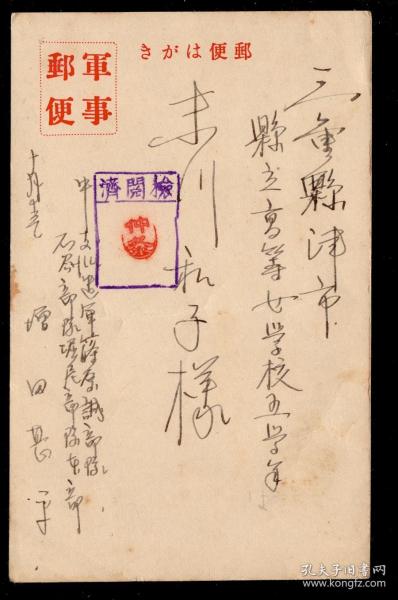 郵便はがき
軍事
郵便
三重縣津市
縣立高等女学校五学年
末川和子様
檢閲濟
中支派遣軍篠原誠部隊
石原部隊堀尾部隊東部
増田甚平
孔夫子旧书网
www.kongfz.com